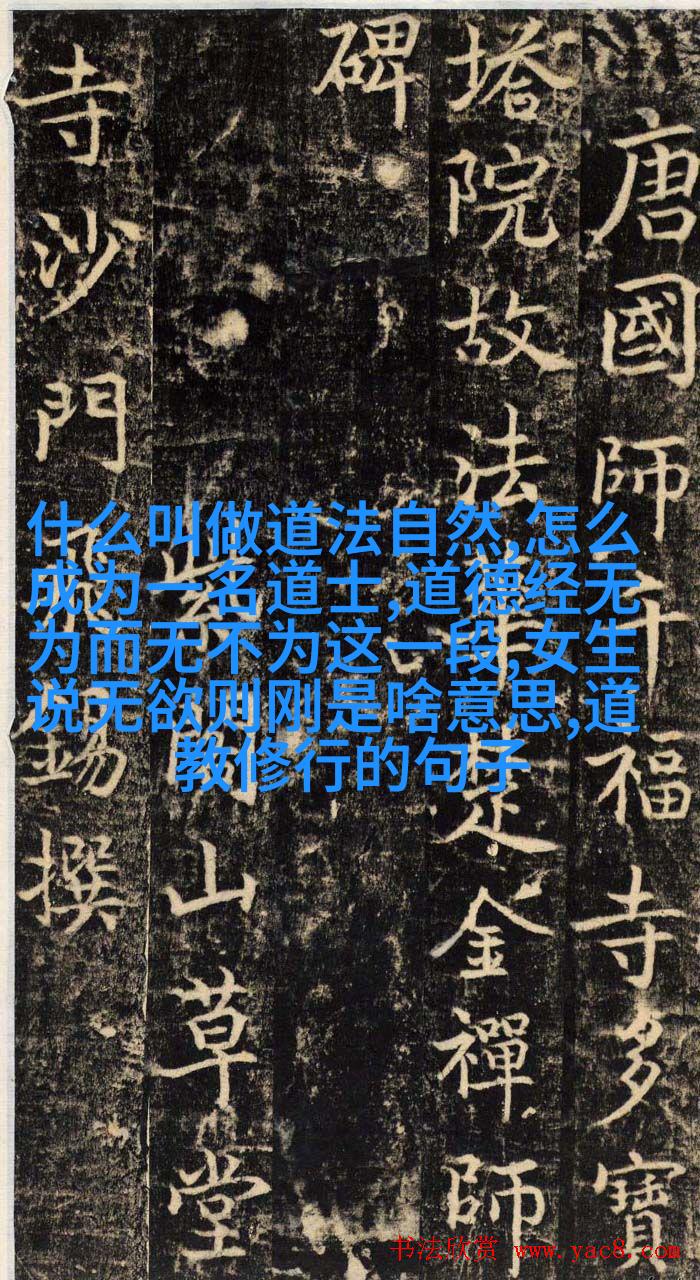 唐國師千福寺多寶
塔院故法華楚金禪師
碑
紫閣山草堂
寺沙門飛錫撰
什么叫做道法自然,怎么
成为一名道士,道德经无
为而无不为这一段,女生
说无欲则刚是啥意思,道
教修行的句子
书法欣赏 www.yac8.com